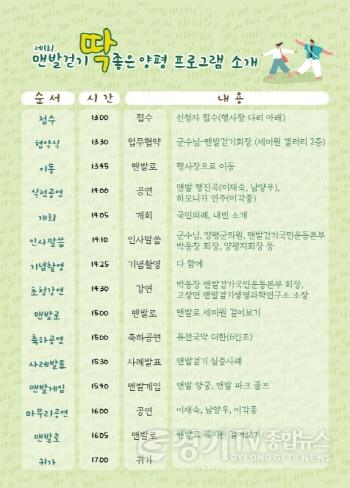 제1회
맨발걷기 딱 좋은 양평 프로그램 소개
순서 시간 내용
접수 13:00 접수 신청자 접수(행사장 다리 아래)
협약식 13:30 업무협약 군수님-맨발걷기회장 (세미원 갤러리 2층)
이동 13:45 맨발로 행사장으로 이동
식전공연 14:00 공연 맨발 행진곡(이재숙, 남양우),
하모니카 연주(이각종)
개회 14:05 개회 국민의례, 내빈 소개
인사말씀 14:10 인사말씀 군수님, 양평군의원, 맨발걷기국민운동본부
박동창 회장, 양평지회장 등
기념촬영 14:25 기념촬영 다 함께
초청강연 14:30 강연 박동창 맨발걷기국민운동본부 회장,
고장면 맨발걷기생명과학연구소 소장
맨발로 15:00 맨발로 맨발로 세미원 걸어보기
축하공연 15:00 축하공연 퓨전국악 더한(6인조)
사례발표 15:30 사례발표 맨발걷기 실증사례
맨발게임 15:40 맨발게임 맨발 양궁, 맨발 파크 골프
마무리공연 16:00 공연 이재숙, 남양우, 이각종
맨발로 16:05 맨발로 맨발로 세미원 걸어보기
귀가 17:00 귀가
경기tv종합뉴스
GYEONG GI TV NEWS